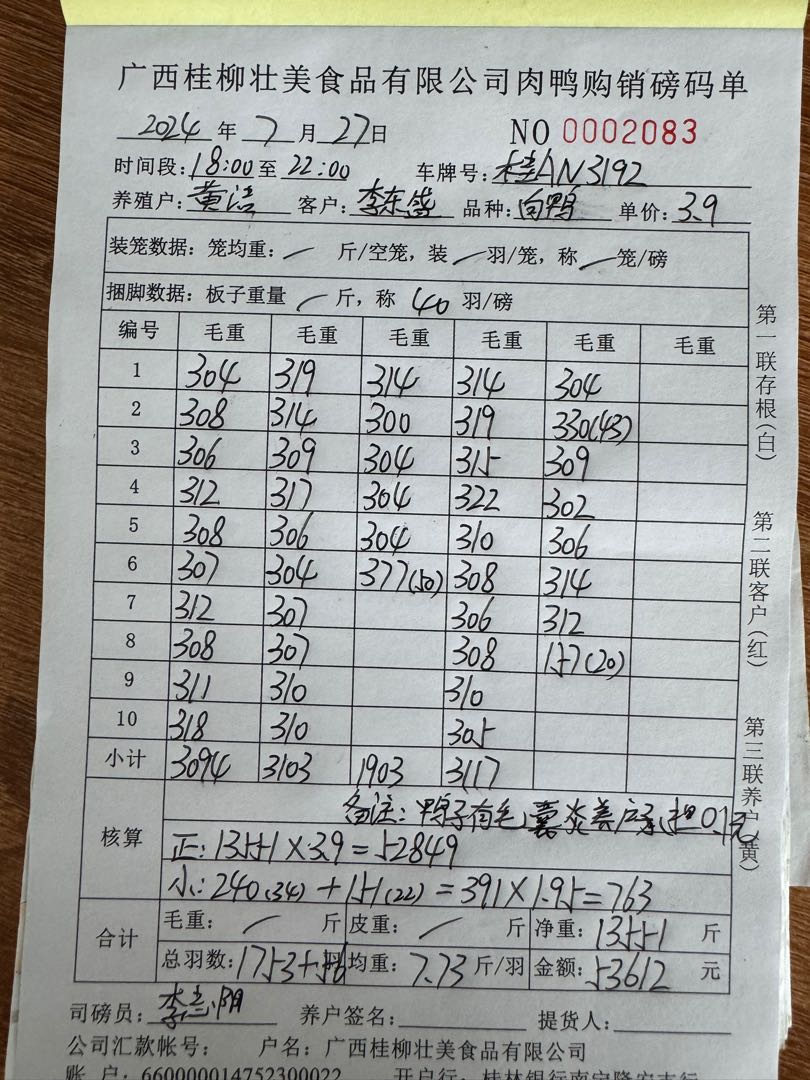 广西桂柳壮美食品有限公司肉鸭购销磅码单
2024 年 7 月 27 日 NO 0002083
时间段: 18:00 至 22:00 车牌号: 桂AN3192
养殖户: 黄洁 客户: 李东 品种: 白鸭 单价: 3.9
装笼数据: 笼均重: / 斤/空笼, 装 / 羽/笼, 称 / 笼/磅
捆脚数据: 板子重量 / 斤, 称 40 羽/磅
编号 毛重 毛重 毛重 毛重 毛重 毛重
1 304 319 314 314 304
2 308 314 300 319 330(43)
3 306 309 304 315 309
4 312 317 304 322 302
5 308 306 304 310 306
6 307 304 377(50) 308 314
7 312 307 306 312
8 308 307 308 157(20)
9 311 310 310
10 318 310 305
小计 3094 3103 1903 3117
核算
备注: 鸭子有毛囊炎养户承担0.1元
正: 13551×3.9=52849
小: 240(34)+151(22)=391×1.95=763
合计
毛重: / 斤 皮重: / 斤 净重: 13551 斤
总羽数: 1753+56 羽 均重: 7.73 斤/羽 金额: 53612 元
司磅员: 李志阳 养户签名: 提货人:
公司汇款帐号: 户名: 广西桂柳壮美食品有限公司
账 户: 660000014752300022 开户行: 桂林银行南宁隆安支行
第一联存根(白)
第二联客户(红)
第三联养户(黄)